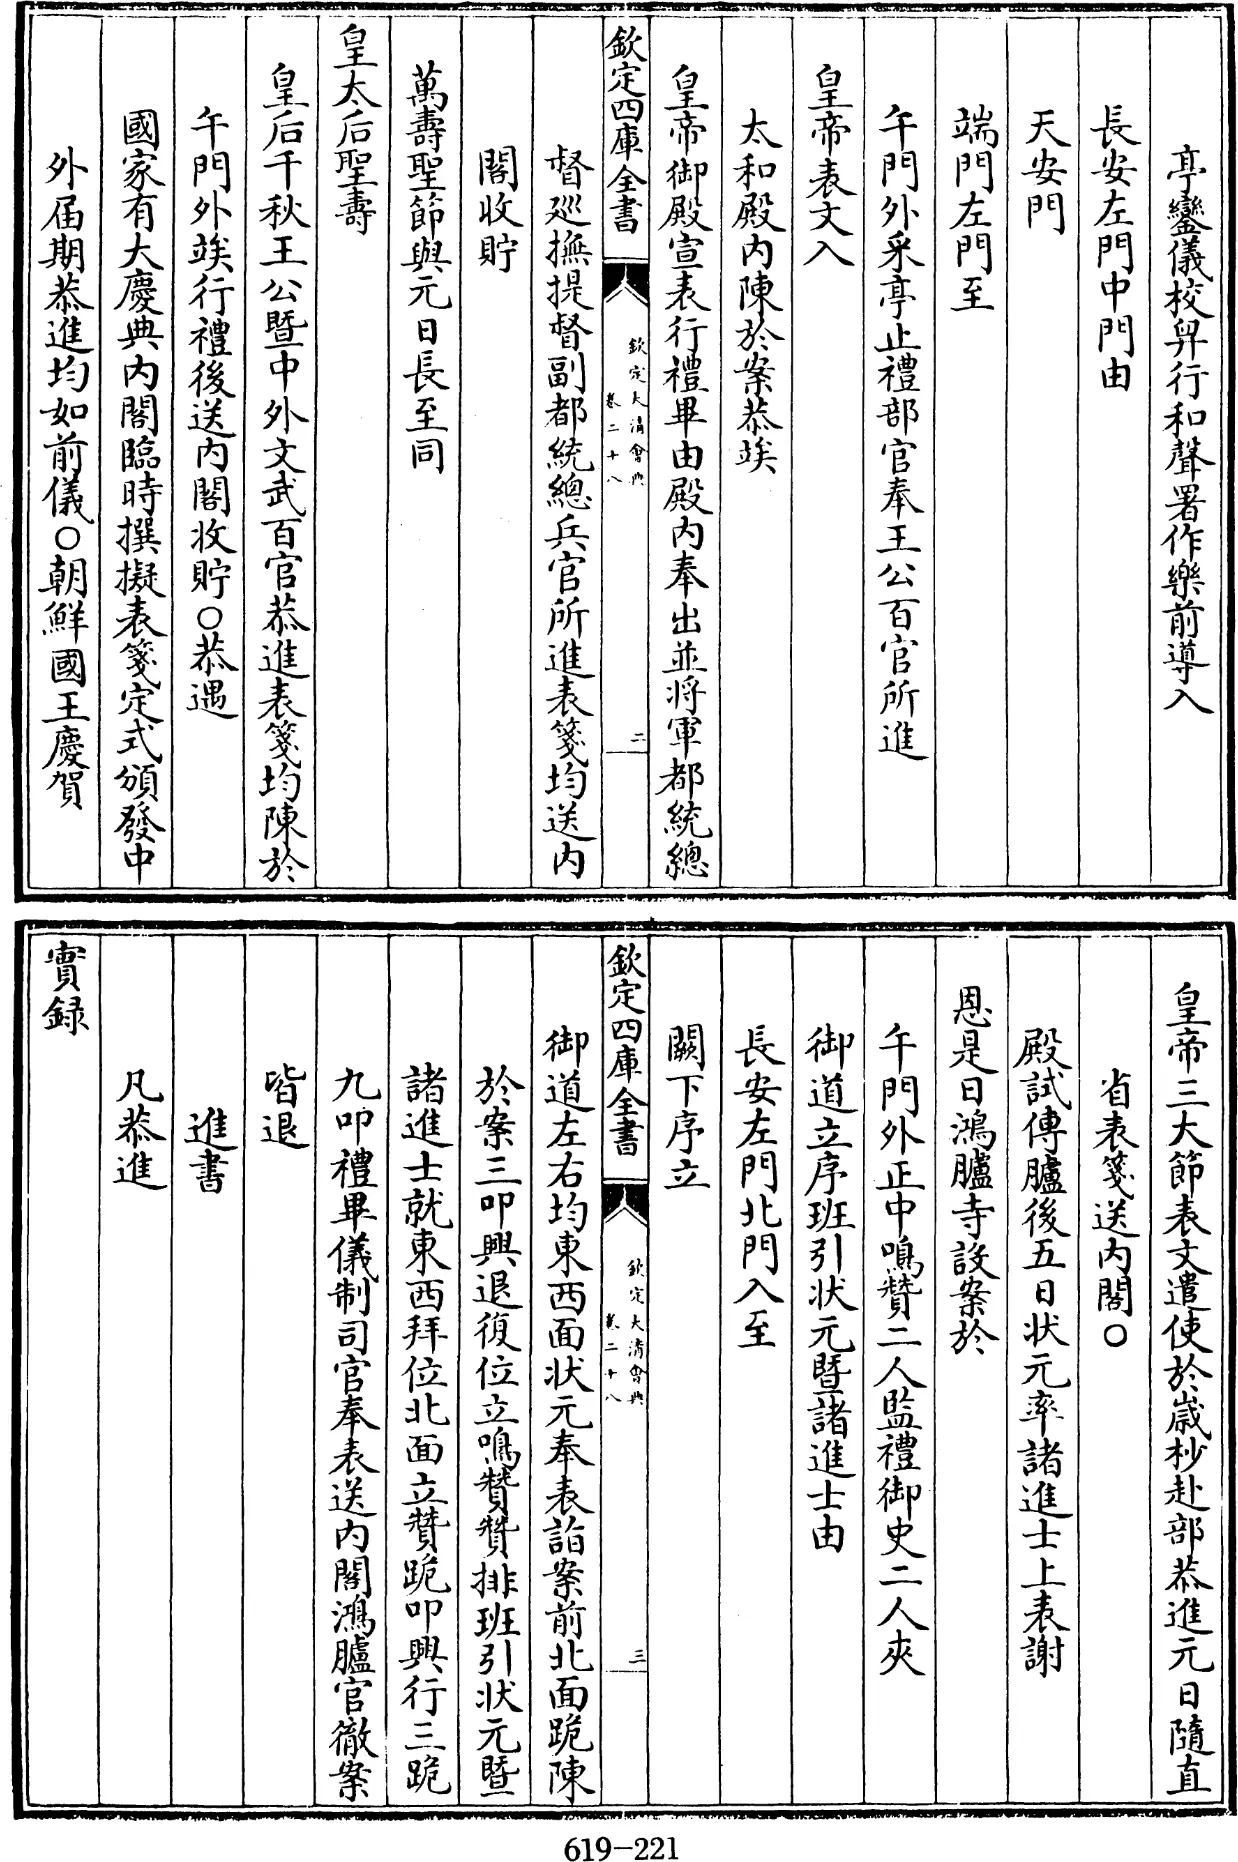 亭鑾儀校舁行和聲署作樂前導入
長安左門中門由
天安門
端門左門至
午門外采亭止禮部官奉王公百官所進
皇帝表文入
太和殿內陳於案恭竢
皇帝御殿宣表行禮畢由殿內奉出並將軍都統總
欽定四庫全書
欽定大清會典
卷二十八
二
督巡撫提督副都統總兵官所進表箋均送內
閣收貯
萬壽聖節與元日長至同
皇太后聖壽
皇后千秋王公暨中外文武百官恭進表箋均陳於
午門外竢行禮後送內閣收貯○恭遇
國家有大慶典內閣臨時撰擬表箋定式頒發中
外届期恭進均如前儀○朝鮮國王慶賀
皇帝三大節表文遣使於嵗杪赴部恭進元日隨直
省表箋送內閣○
殿試傳臚後五日狀元率諸進士上表謝
恩是日鴻臚寺設案於
午門外正中鳴贊二人監禮御史二人夾
御道立序班引狀元暨諸進士由
長安左門北門入至
闕下序立
欽定四庫全書
欽定大清會典
卷二十八
三
御道左右均東西面狀元奉表詣案前北面跪陳
於案三叩興退復位立鳴贊贊排班引狀元暨
諸進士就東西拜位北面立贊跪叩興行三跪
九叩禮畢儀制司官奉表送內閣鴻臚官徹案
皆退
進書
凡恭進
實録
619-221